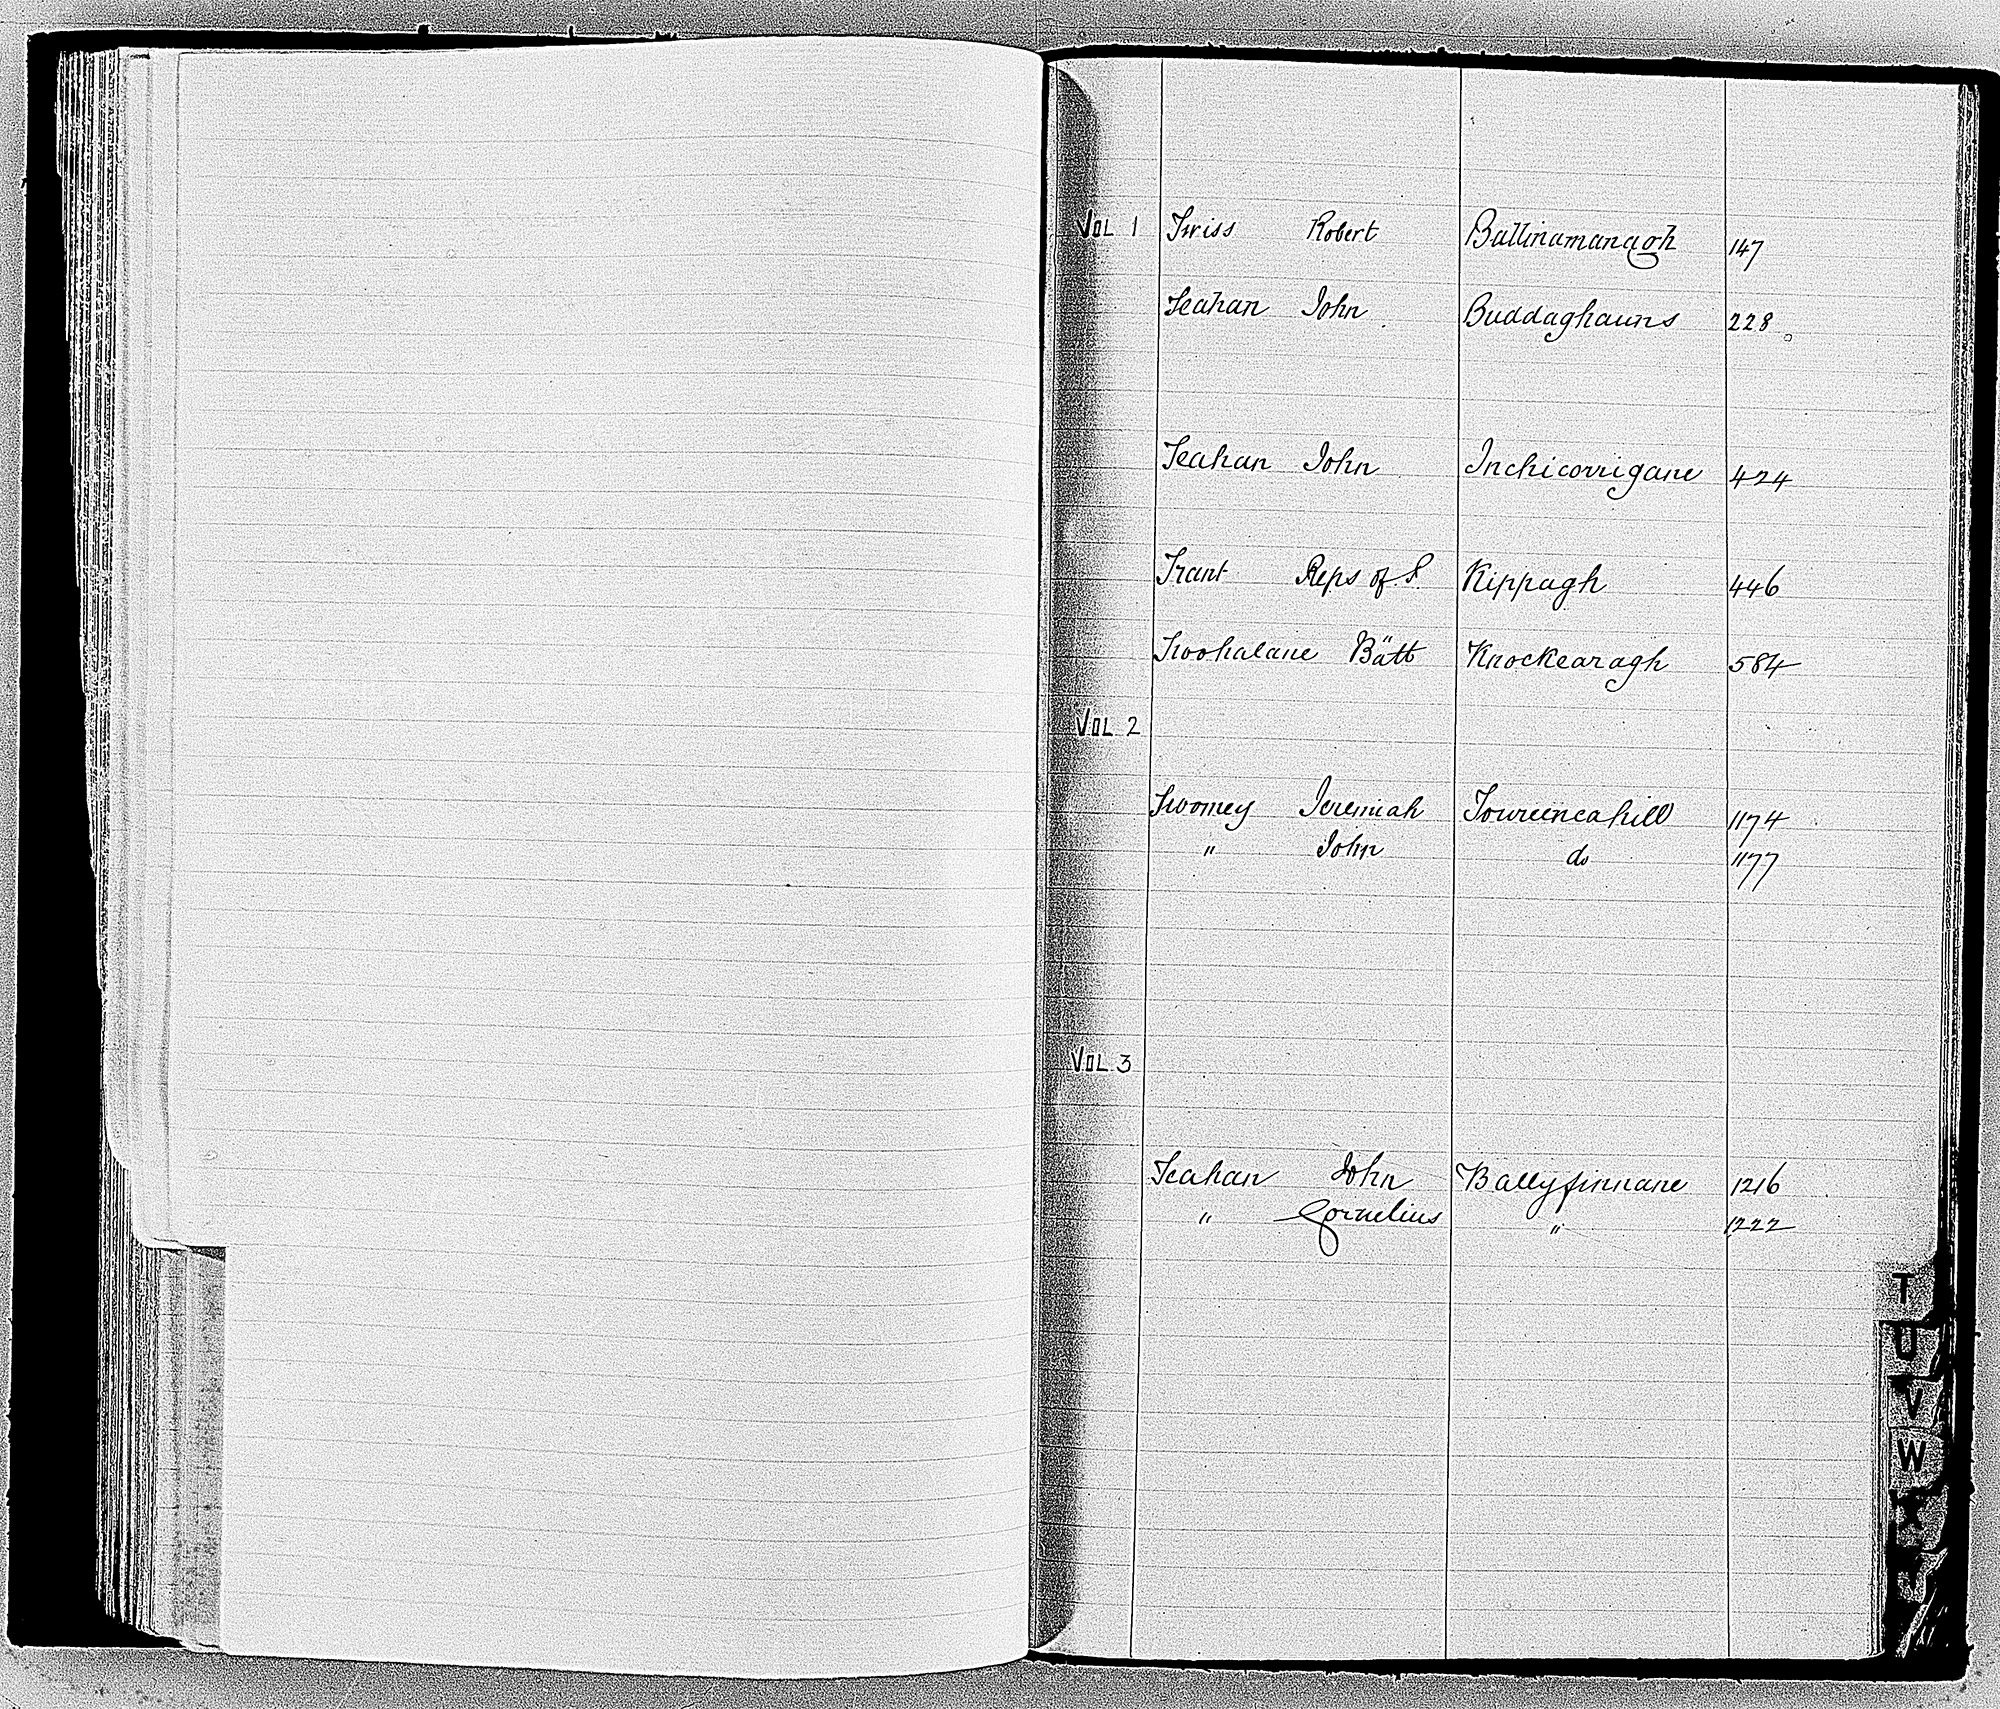 VOL 1 Twiss Robert Ballinamanagh 147
Teahan John Buddaghauns 228
Teahan John Inchicorrigane 424
Trant Reps of Kippagh 446
Twohalane Batt Knockearagh 584
VOL 2
Twomey Jeremiah Toureencahill 1174
" John do 1177
VOL. 3
Teahan John Ballyfinnane 1216
" Cornelius " 1222
T
U
V
W
X